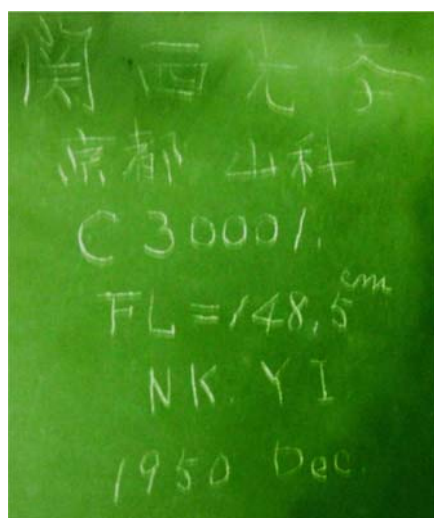 関西光
京都 山科
C 30001.
FL = 148.5 cm
NK. YI
1950 Dec.